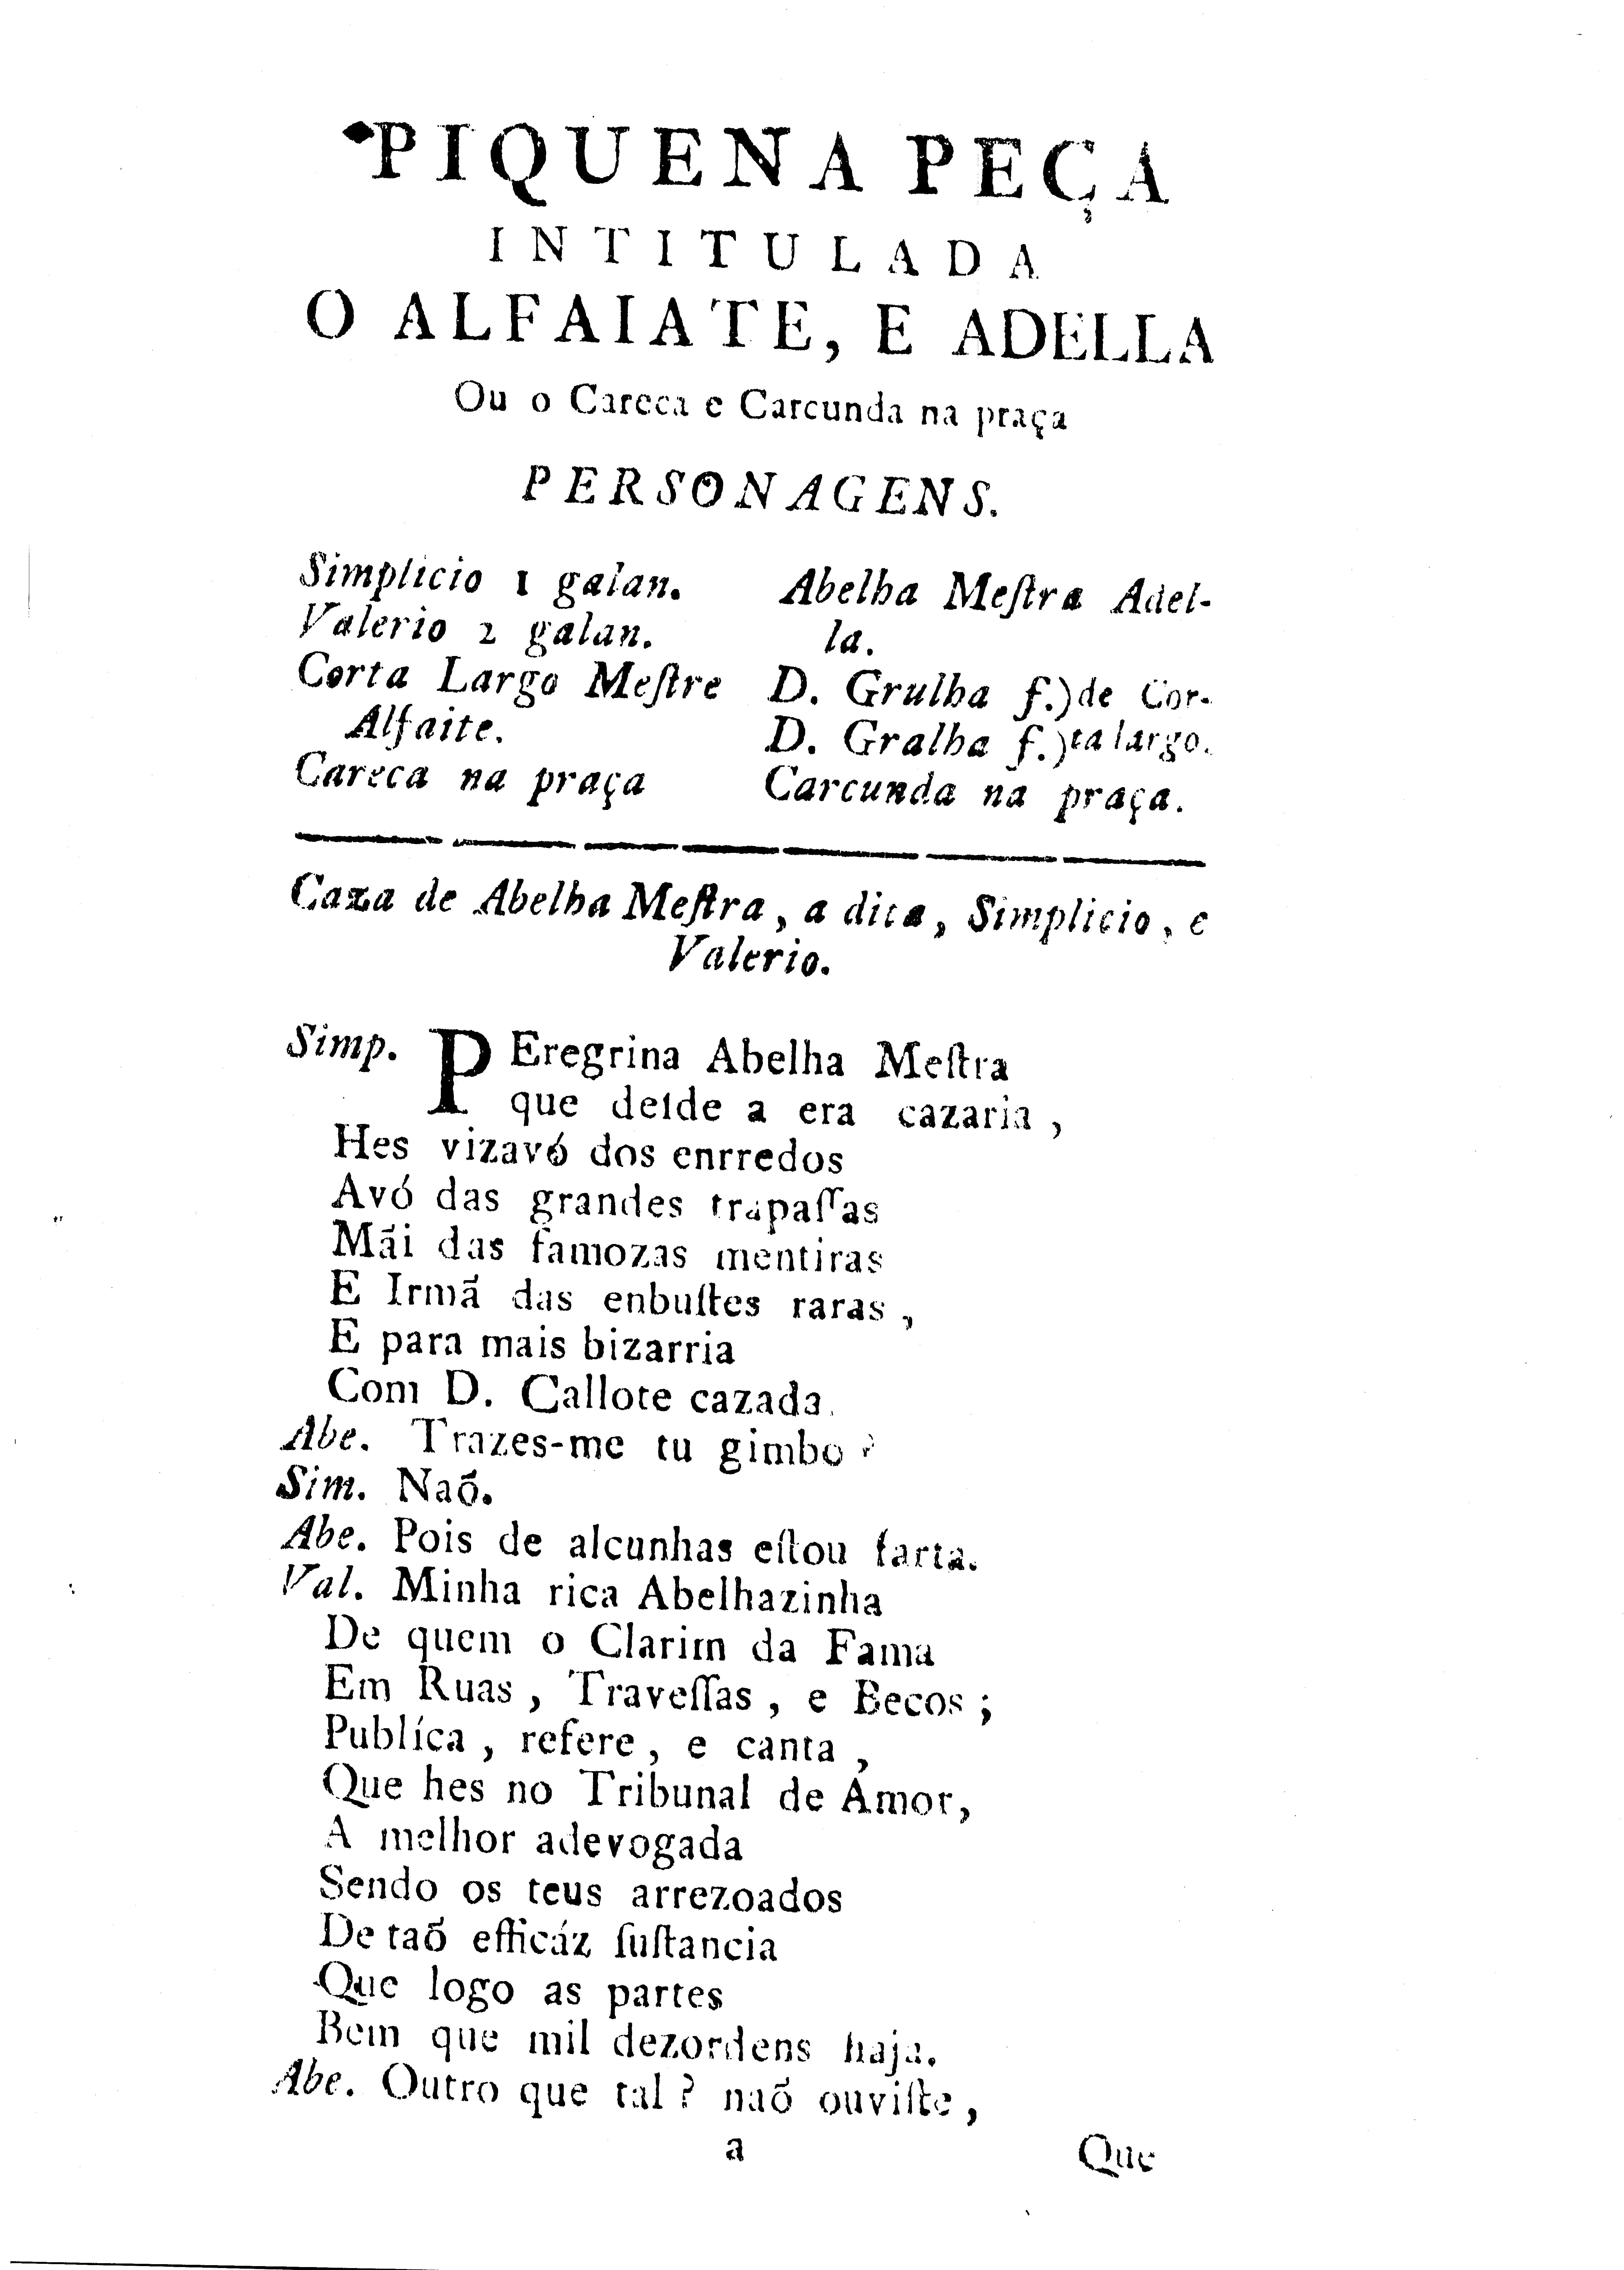 PIQUENA PEÇA
INTITULADA
O ALFAIATE, E ADELLA
Ou o Careca e Carcunda na praça
PERSONAGENS.
Simplicio 1 galan.
Valerio 2 galan.
Corta Largo Meſtre
Alfaite.
Careca na praça
Abelha Meſtra Adel-
la.
D. Grulha f.) de Cor-
D. Gralha f.) ta largo.
Carcunda na praça.
Caza de Abelha Meſtra, a dita, Simplicio, e
Valerio.
Simp. PEregrina Abelha Meſtra
que deſde a era cazaria,
Hes vizavó dos enrredos
Avó das grandes trapaſſas
Mãi das famozas mentiras
E Irmã das enbuſtes raras,
E para mais bizarria
Com D. Callote cazada.
Abe. Trazes-me tu gimbo?
Sim. Naõ.
Abe. Pois de alcunhas eſtou farta.
Val. Minha rica Abelhazinha
De quem o Clarim da Fama
Em Ruas, Traveſſas, e Becos;
Publíca, refere, e canta,
Que hes no Tribunal de Amor,
A melhor adevogada
Sendo os teus arrezoados
De taõ efficáz ſuſtancia
Que logo as partes
Bem que mil dezordens haja.
Abe. Outro que tal? naõ ouviſte,
a Que